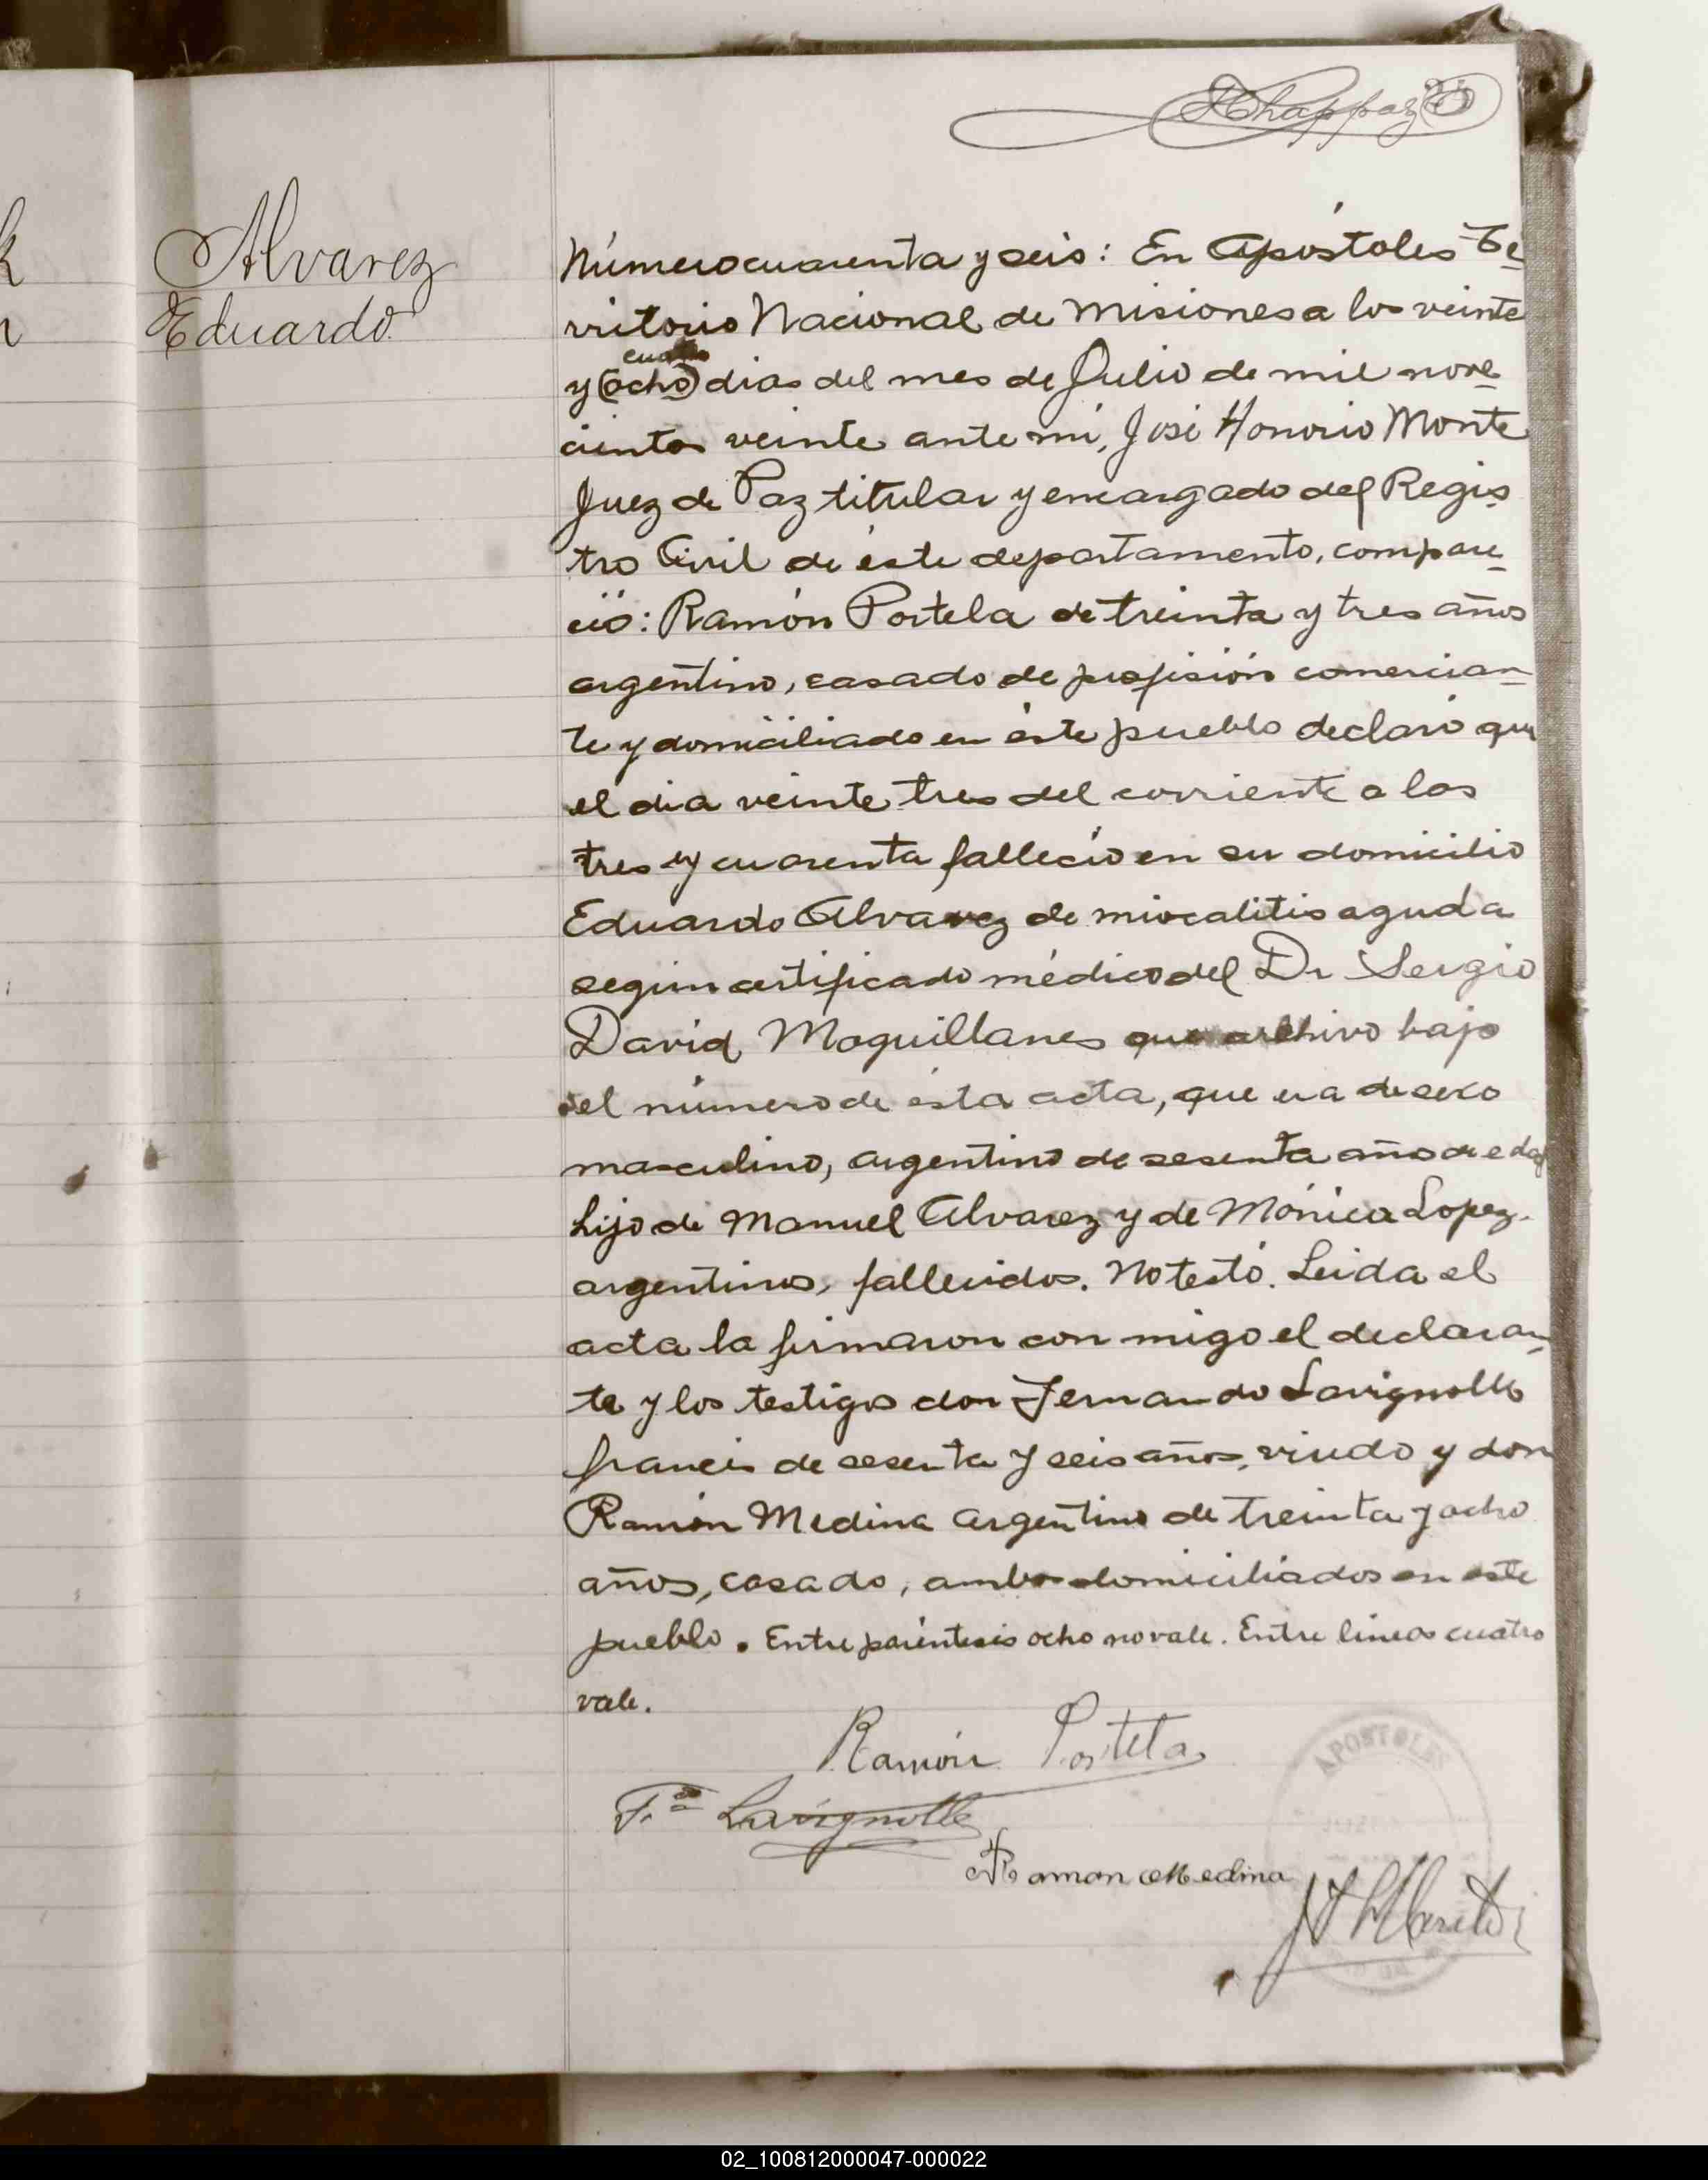 Chappaz
Alvarez
Eduardo
Número cuarenta y seis: En Apóstoles Te-
rritorio Nacional de Misiones a los veinte
cuatro
y (ocho) dias del mes de Julio de mil nove-
cientos veinte ante mi, José Honorio Monte
Juez de Paz titular y encargado del Regis-
tro Civil de éste departamento, compare-
ció: Ramón Portela de treinta y tres años
argentino, casado de profisión comercian-
te y domiciliado en éste pueblo declaró que
el dia veinte tres del corriente a las
tres y cuarenta falleció en su domicilio
Eduardo Alvarez de miocalitis aguda
segun certificado médico del Dr Sergio
David Maguillanes que archivo bajo
el número de ésta acta, que era de sexo
masculino, argentino de sesenta años de edad
hijo de Manuel Alvarez y de Mónica Lopez.
argentinos, fallecidos. No testó. Leida el
acta la firmaron con migo el declaran-
te y los testigos don Fernando Lavignolle
francés de sesenta y seis años, viudo y don
Ramón Medina argentino de treinta y ocho
años, casado, ambos domiciliados en este
pueblo. Entre paréntesis ocho no vale. Entre lineas cuatro
vale.
Ramón Portela
F.do Lavignolle
Ramon Medina
APOSTOLES
02_100812000047-000022